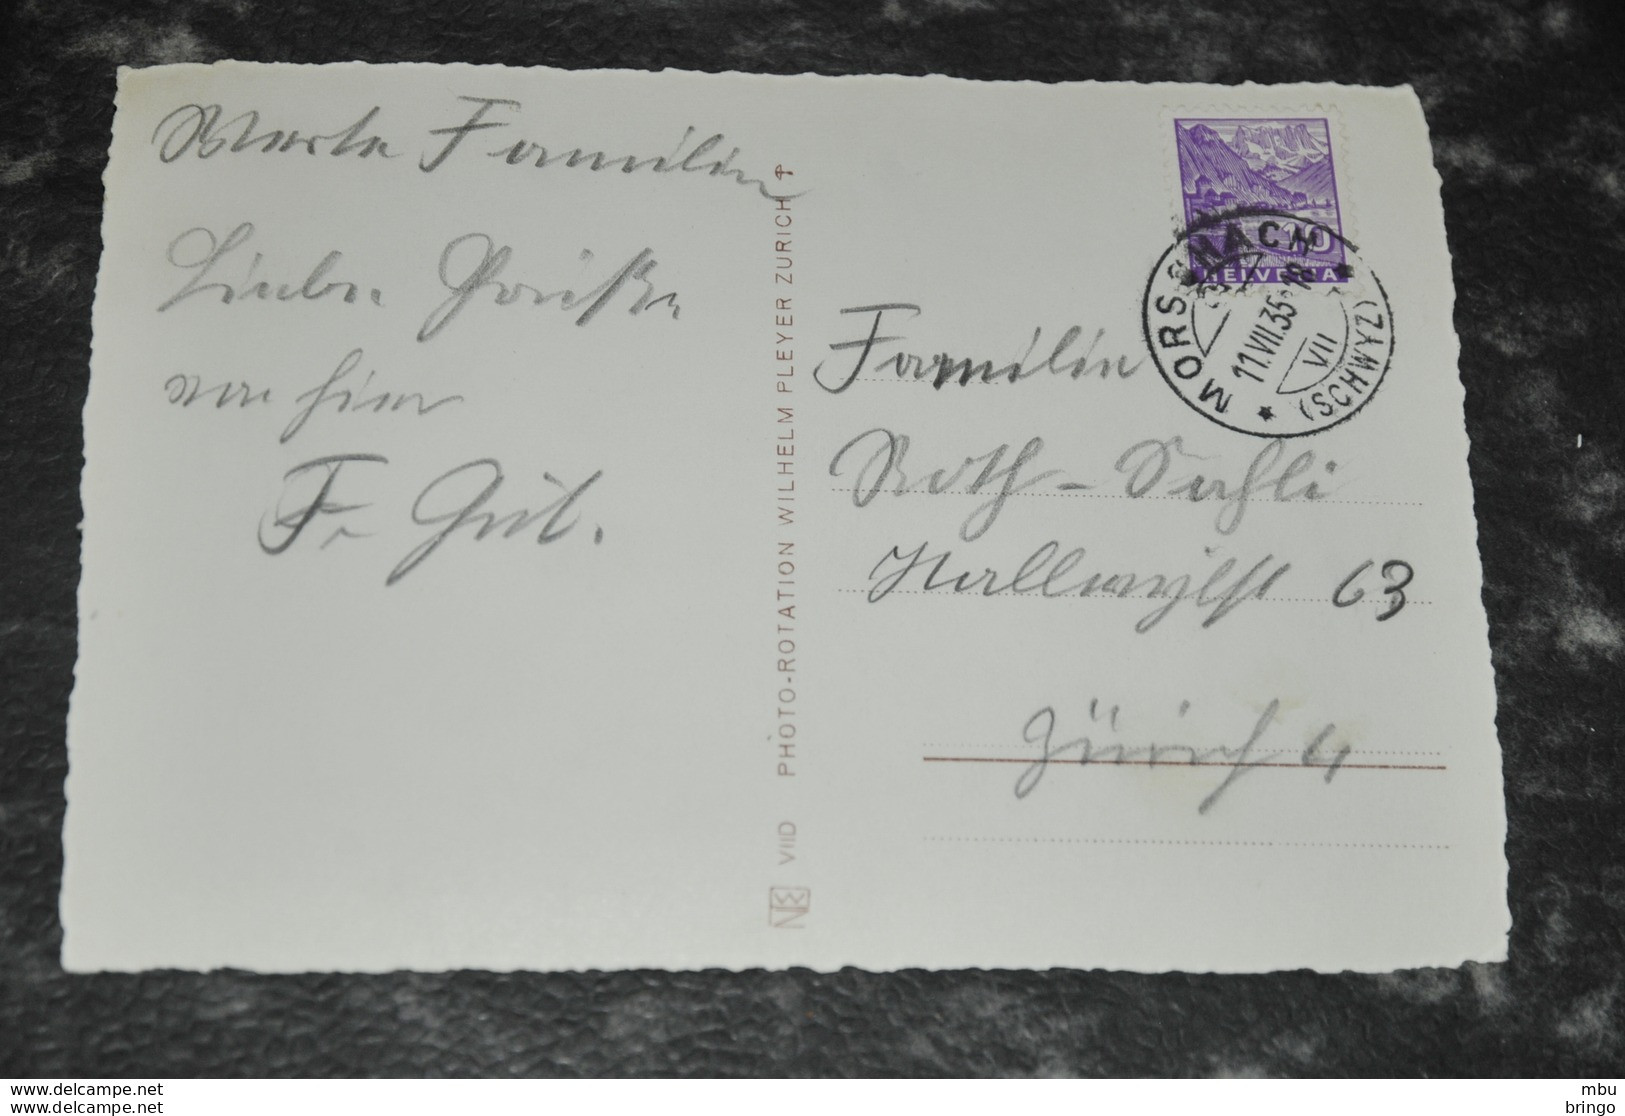 Werte Familie
Liebe Grüße
von hier
Fr. Gut.
PHOTO-ROTATION WILHELM PLEYER ZURICH
VIID
HELVETIA
10
MORSCHACH
11.VII.35-18
VII
(SCHWYZ)
Familie
Roth-
Hallwylst 63
Zürich 4
www.delcampe.net
www.delcampe.net
mbu
bringo